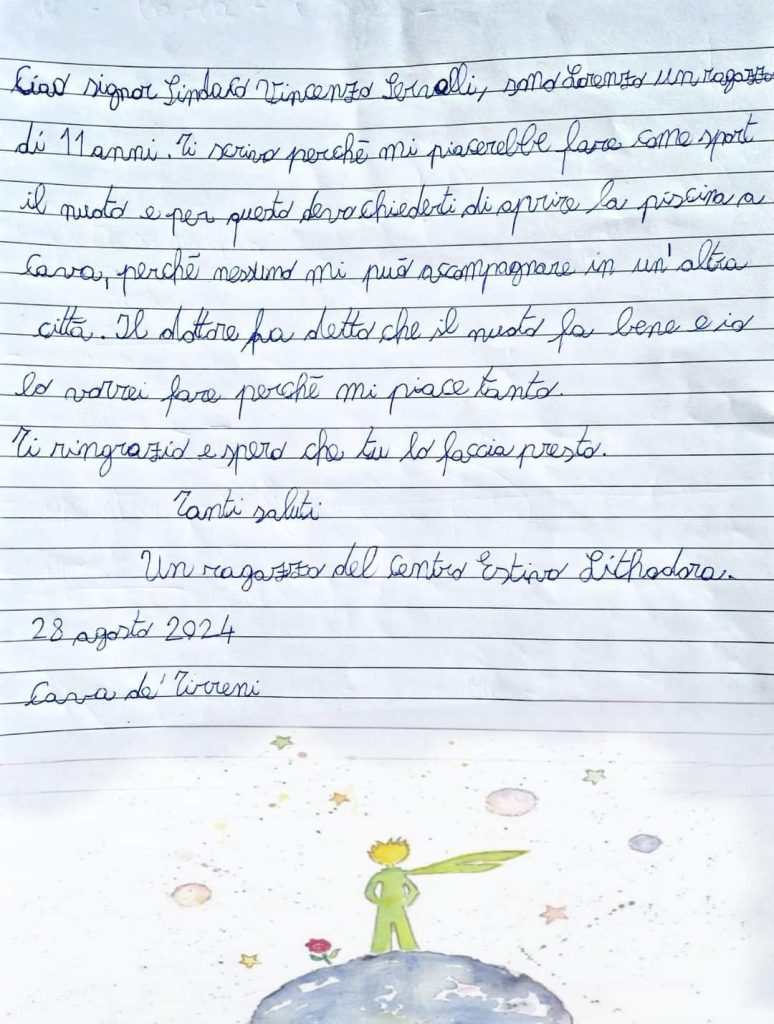 Ciao signor Sindaco Vincenzo Servalli, sono Lorenzo un ragazzo
di 11 anni. Ti scrivo perchè mi piacerebbe fare come sport
il nuoto e per questo devo chiederti di aprire la piscina a
Cava, perchè nessuno mi può accompagnare in un'altra
città. Il dottore ha detto che il nuoto fa bene e io
lo vorrei fare perchè mi piace tanto.
Ti ringrazio e spero che tu lo faccia presto.
Tanti saluti
Un ragazzo del Centro Estivo Lithodora.
28 agosto 2024
Cava de' Tirreni